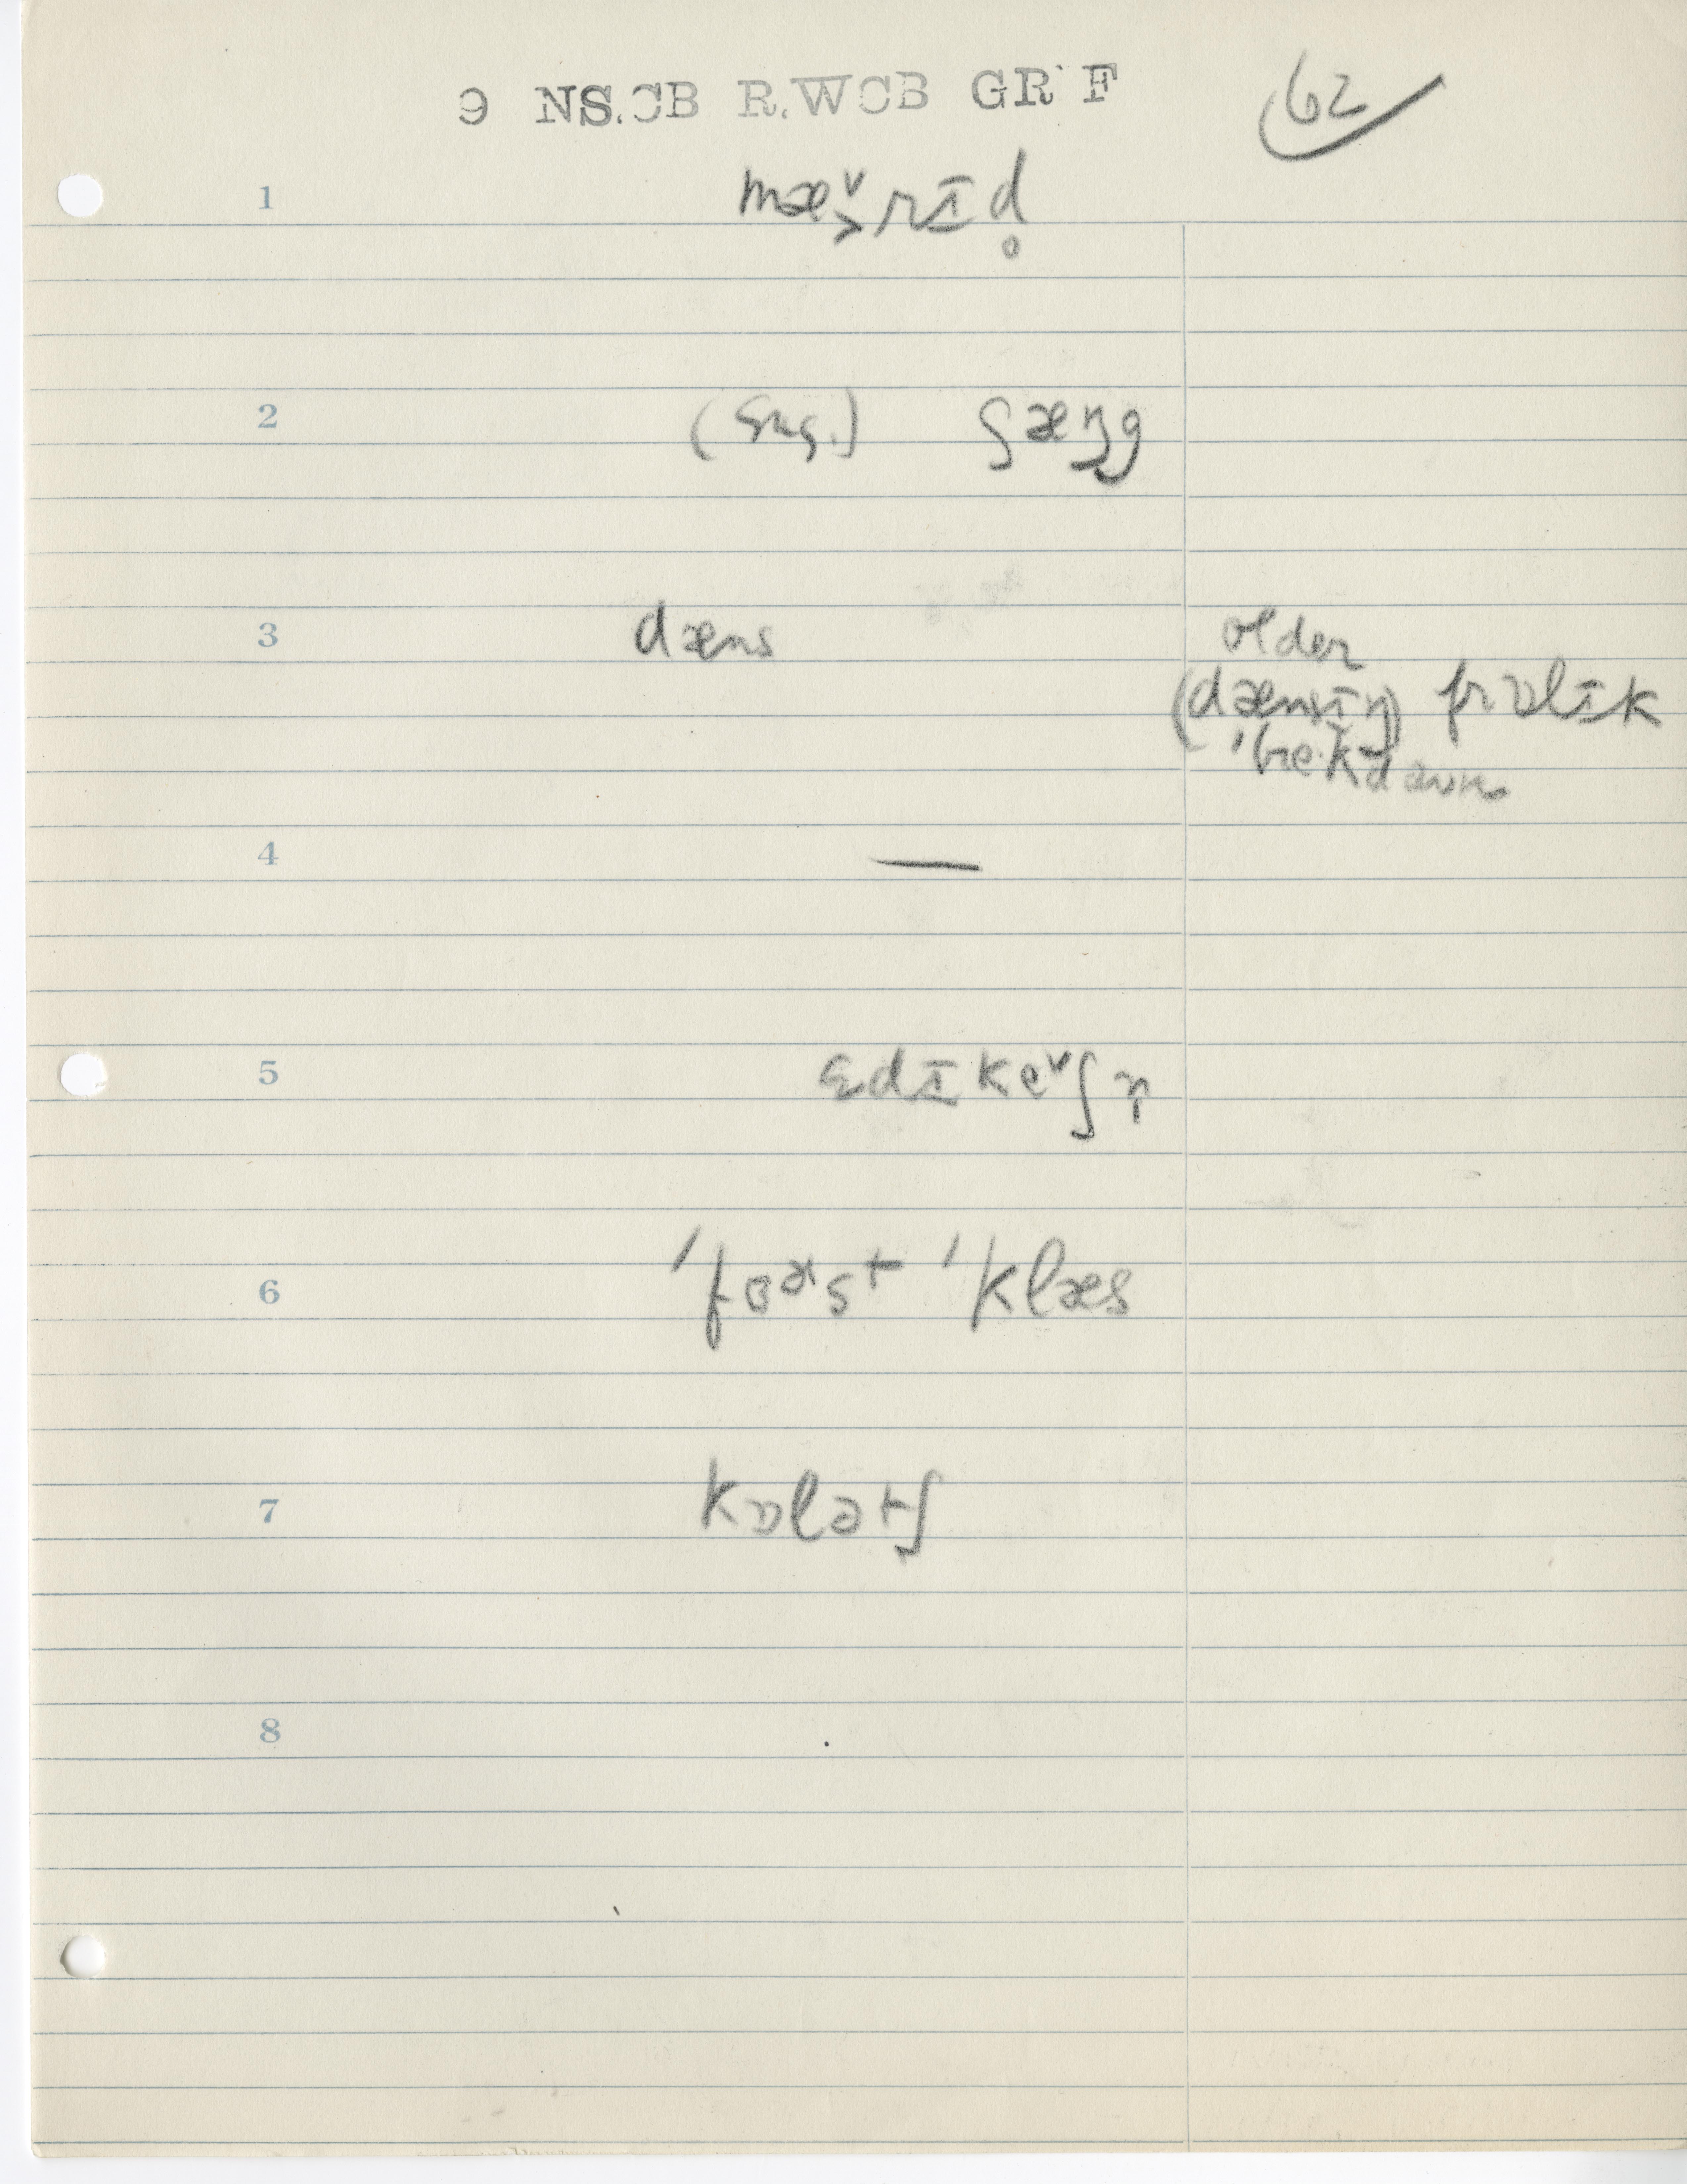 9 NS.CB R.WCB GR F
62
1 mæ˅˃rɪd̥
2 (Eng.) gæŋg
3 dæns
older
(dænsɪŋ) frɒlɪk
4 —
5 ɛdɪke˅ʃn̩
6 ˈfɜᵊst ˈklæs
7 kɒlətʃ
8